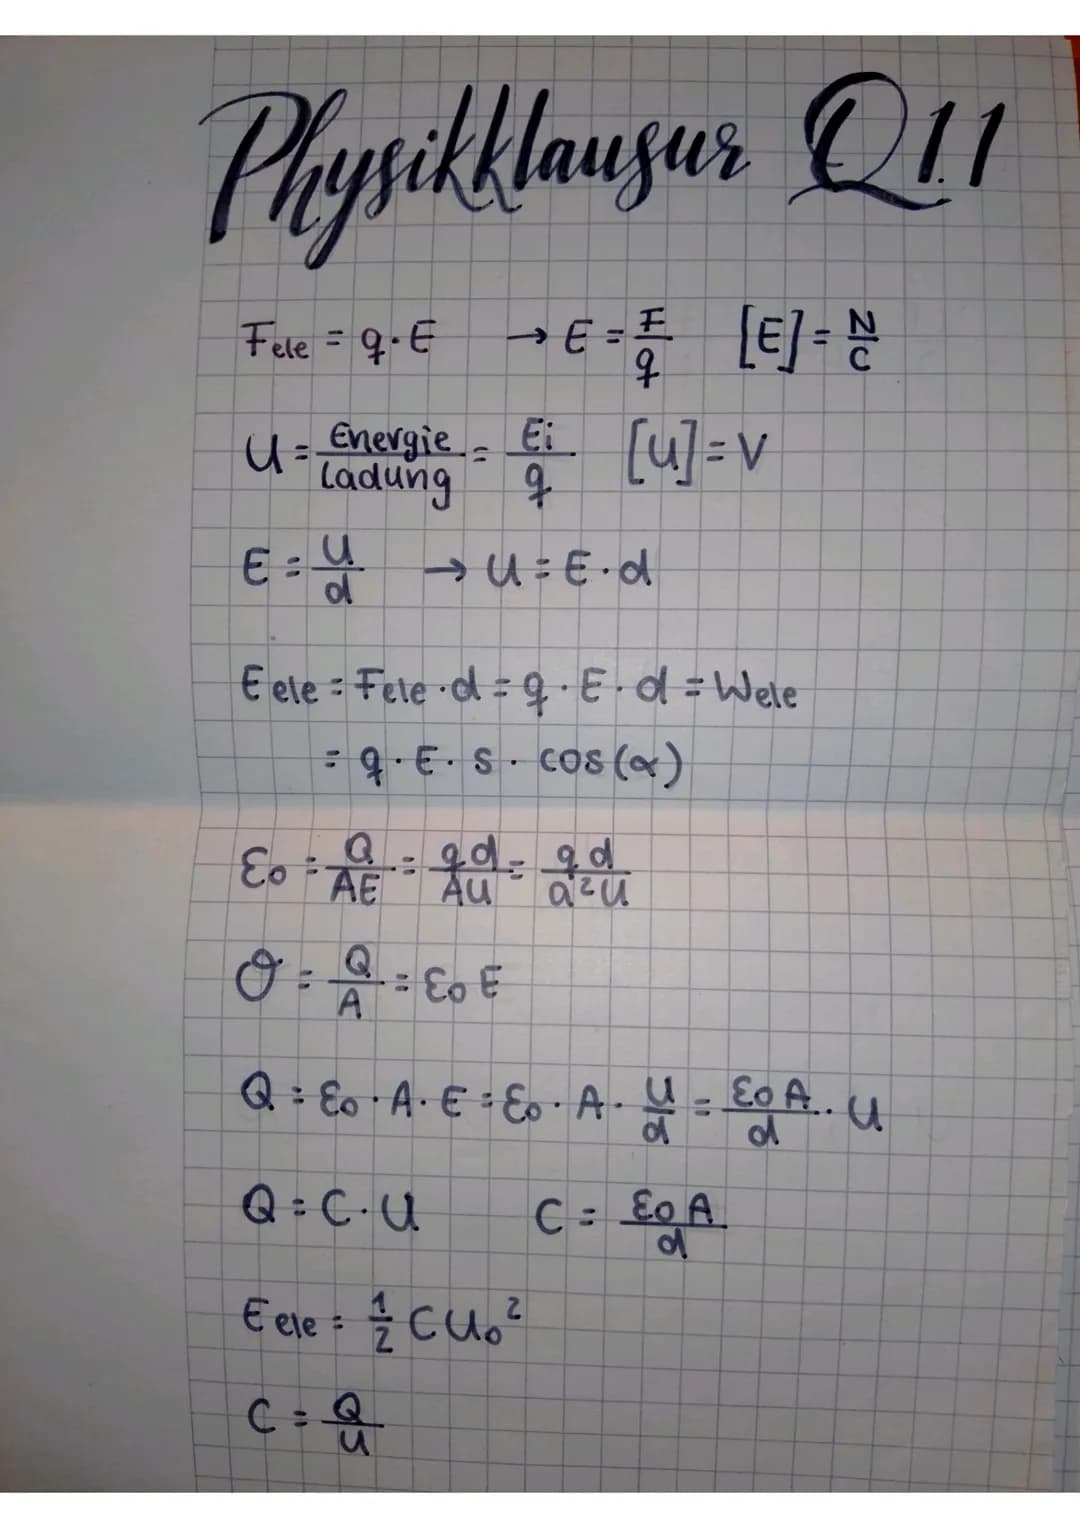 Physikklausur Q1.1
Fele = q·E → E = F/q [E] = N/C
U = Energie/Ladung = Ei/q [U] = V
E = U/d → U = E·d
Eele = Fele·d = q·E·d = Wele
= q·E·s·cos(α)
ε0 = Q/AE = qd/AU = qd/a²U
σ = Q/A = ε0 E
Q = ε0·A·E = ε0·A·U/d = ε0A/d·U
Q = C·U C = ε0A/d
Eele = 1/2 CU0²
C = Q/U